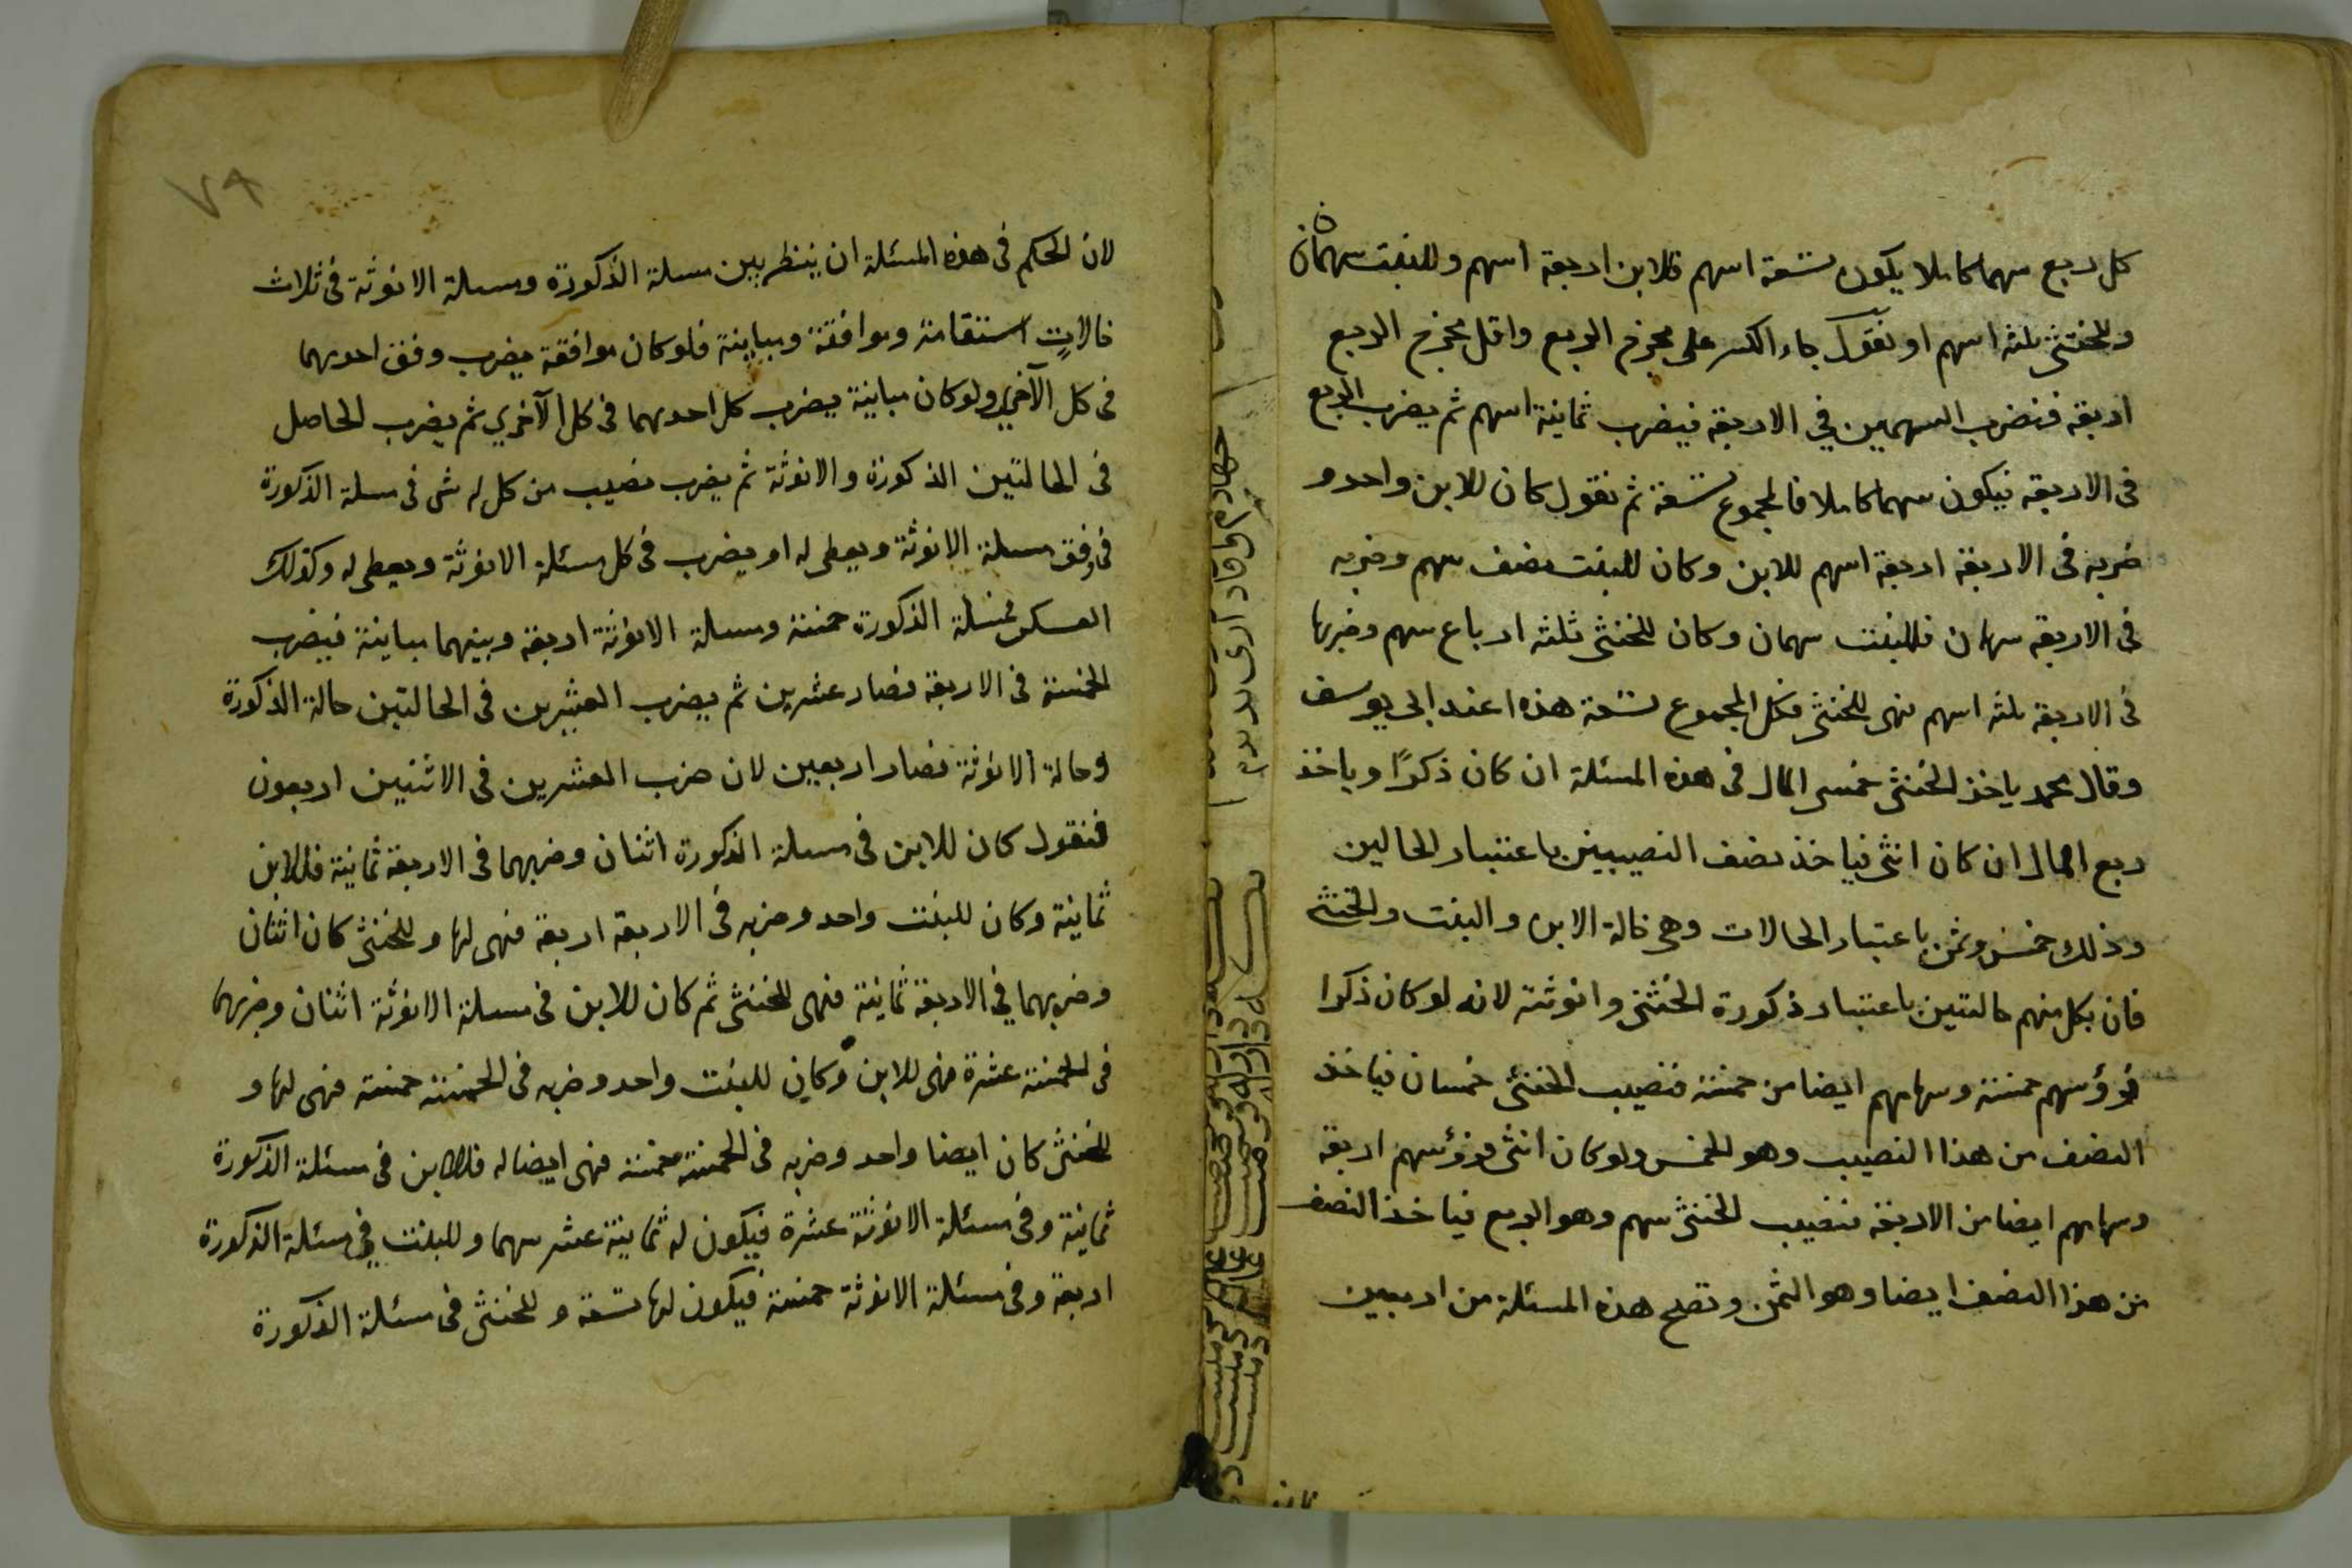 كل ربع سهما كاملا يكون تسعة اسهم فللابن اربعة اسهم وللبنت سهمان
وللخنثى ثلثه اسهم او نقول جاء الكسر على مخرج الربع واقل مخرج الربع
اربعة فنضرب السهمين في الاربعة فيضرب ثمانية اسهم ثم يضرب الربع
فى الاربعة فيكون سهما كاملا فالمجموع تسعة ثم نقول كان للابن واحد و
ضربه فى الاربعة اربعة اسهم للابن وكان للبنت نصف سهم وضربه
فى الاربعة سهمان فللبنت سهمان وكان للخنثى ثلثه ارباع سهم وضربها
فى الاربعة ثلثه اسهم فهى للخنثى فكل المجموع تسعة هذه اعند ابى يوسف
وقال محمد ياخذ الخنثى خمسى المال فى هذه المسئلة ان كان ذكرًا وياخذ
ربع المال ان كان انثى فياخذ نصف النصيبين باعتبار الحالين
وذلك خمس وثمن باعتبار الحالات وهى حالة الابن والبنت والخنثى
فان بكل منهم حالتين باعتبار ذكورة الخنثى وانوثته لانه لو كان ذكرا
فرؤسهم خمسة وسهامهم ايضا من خمسة فنصيب الخنثى خمسان فياخذ
النصف من هذا النصيب وهو الخمس ولو كان انثى فرؤسهم اربعة
وسهامهم ايضا من الاربعة فنصيب الخنثى سهم وهو الربع فياخذ النصف
من هذا النصف ايضا وهو الثمن وتصح هذه المسئلة من اربعين
٧٩
لان الحكم فى هذه المسئلة ان ينظر بين مسلة الذكورة ومسلة الانوثة فى ثلاث
حالاتٍ استقامة وموافقة ومباينة فلو كان موافقة يضرب وفق احديهما
فى كل الآخرى ولو كان مباينة يضرب كل احديهما فى كل الآخرى ثم يضرب الحاصل
فى الحالتين الذكورة والانوثة ثم يضرب نصيب من كل له شى فى مسلة الذكورة
فى وفق مسلة الانوثة ويعطى له او يضرب فى كل مسئلة الانوثة ويعطى له وكذلك
العكس فمسلة الذكورة خمسة ومسلة الانوثة اربعة وبينهما مباينة فيضرب
الخمسة فى الاربعة فصار عشرين ثم يضرب العشرين فى الحالتين حالة الذكورة
وحالة الانوثة فصار اربعين لان ضرب العشرين فى الاثنين اربعون
فنقول كان للابن فى مسلة الذكورة اثنان وضربهما فى الاربعة ثمانية فللابن
ثمانية وكان للبنت واحد وضربه فى الاربعة اربعة فهى لها وللخنثى كان اثنان
وضربهما في الاربعة ثمانية فهى للخنثى ثم كان للابن فى مسلة الانوثة اثنان وضربهما
فى الخمسة عشرة فهى للابن وكان للبنت واحد وضربه فى الخمسة خمسة فهى لها و
للخنثى كان ايضا واحد وضربه فى الخمسة خمسة فهى ايضا له فللابن فى مسئلة الذكورة
ثمانية وفى مسئلة الانوثة عشرة فيكون له ثمانية عشر سهما وللبنت في مسئلة الذكورة
اربعة وفى مسئلة الانوثة خمسة فيكون لها تسعة وللخنثى فى مسئلة الذكورة